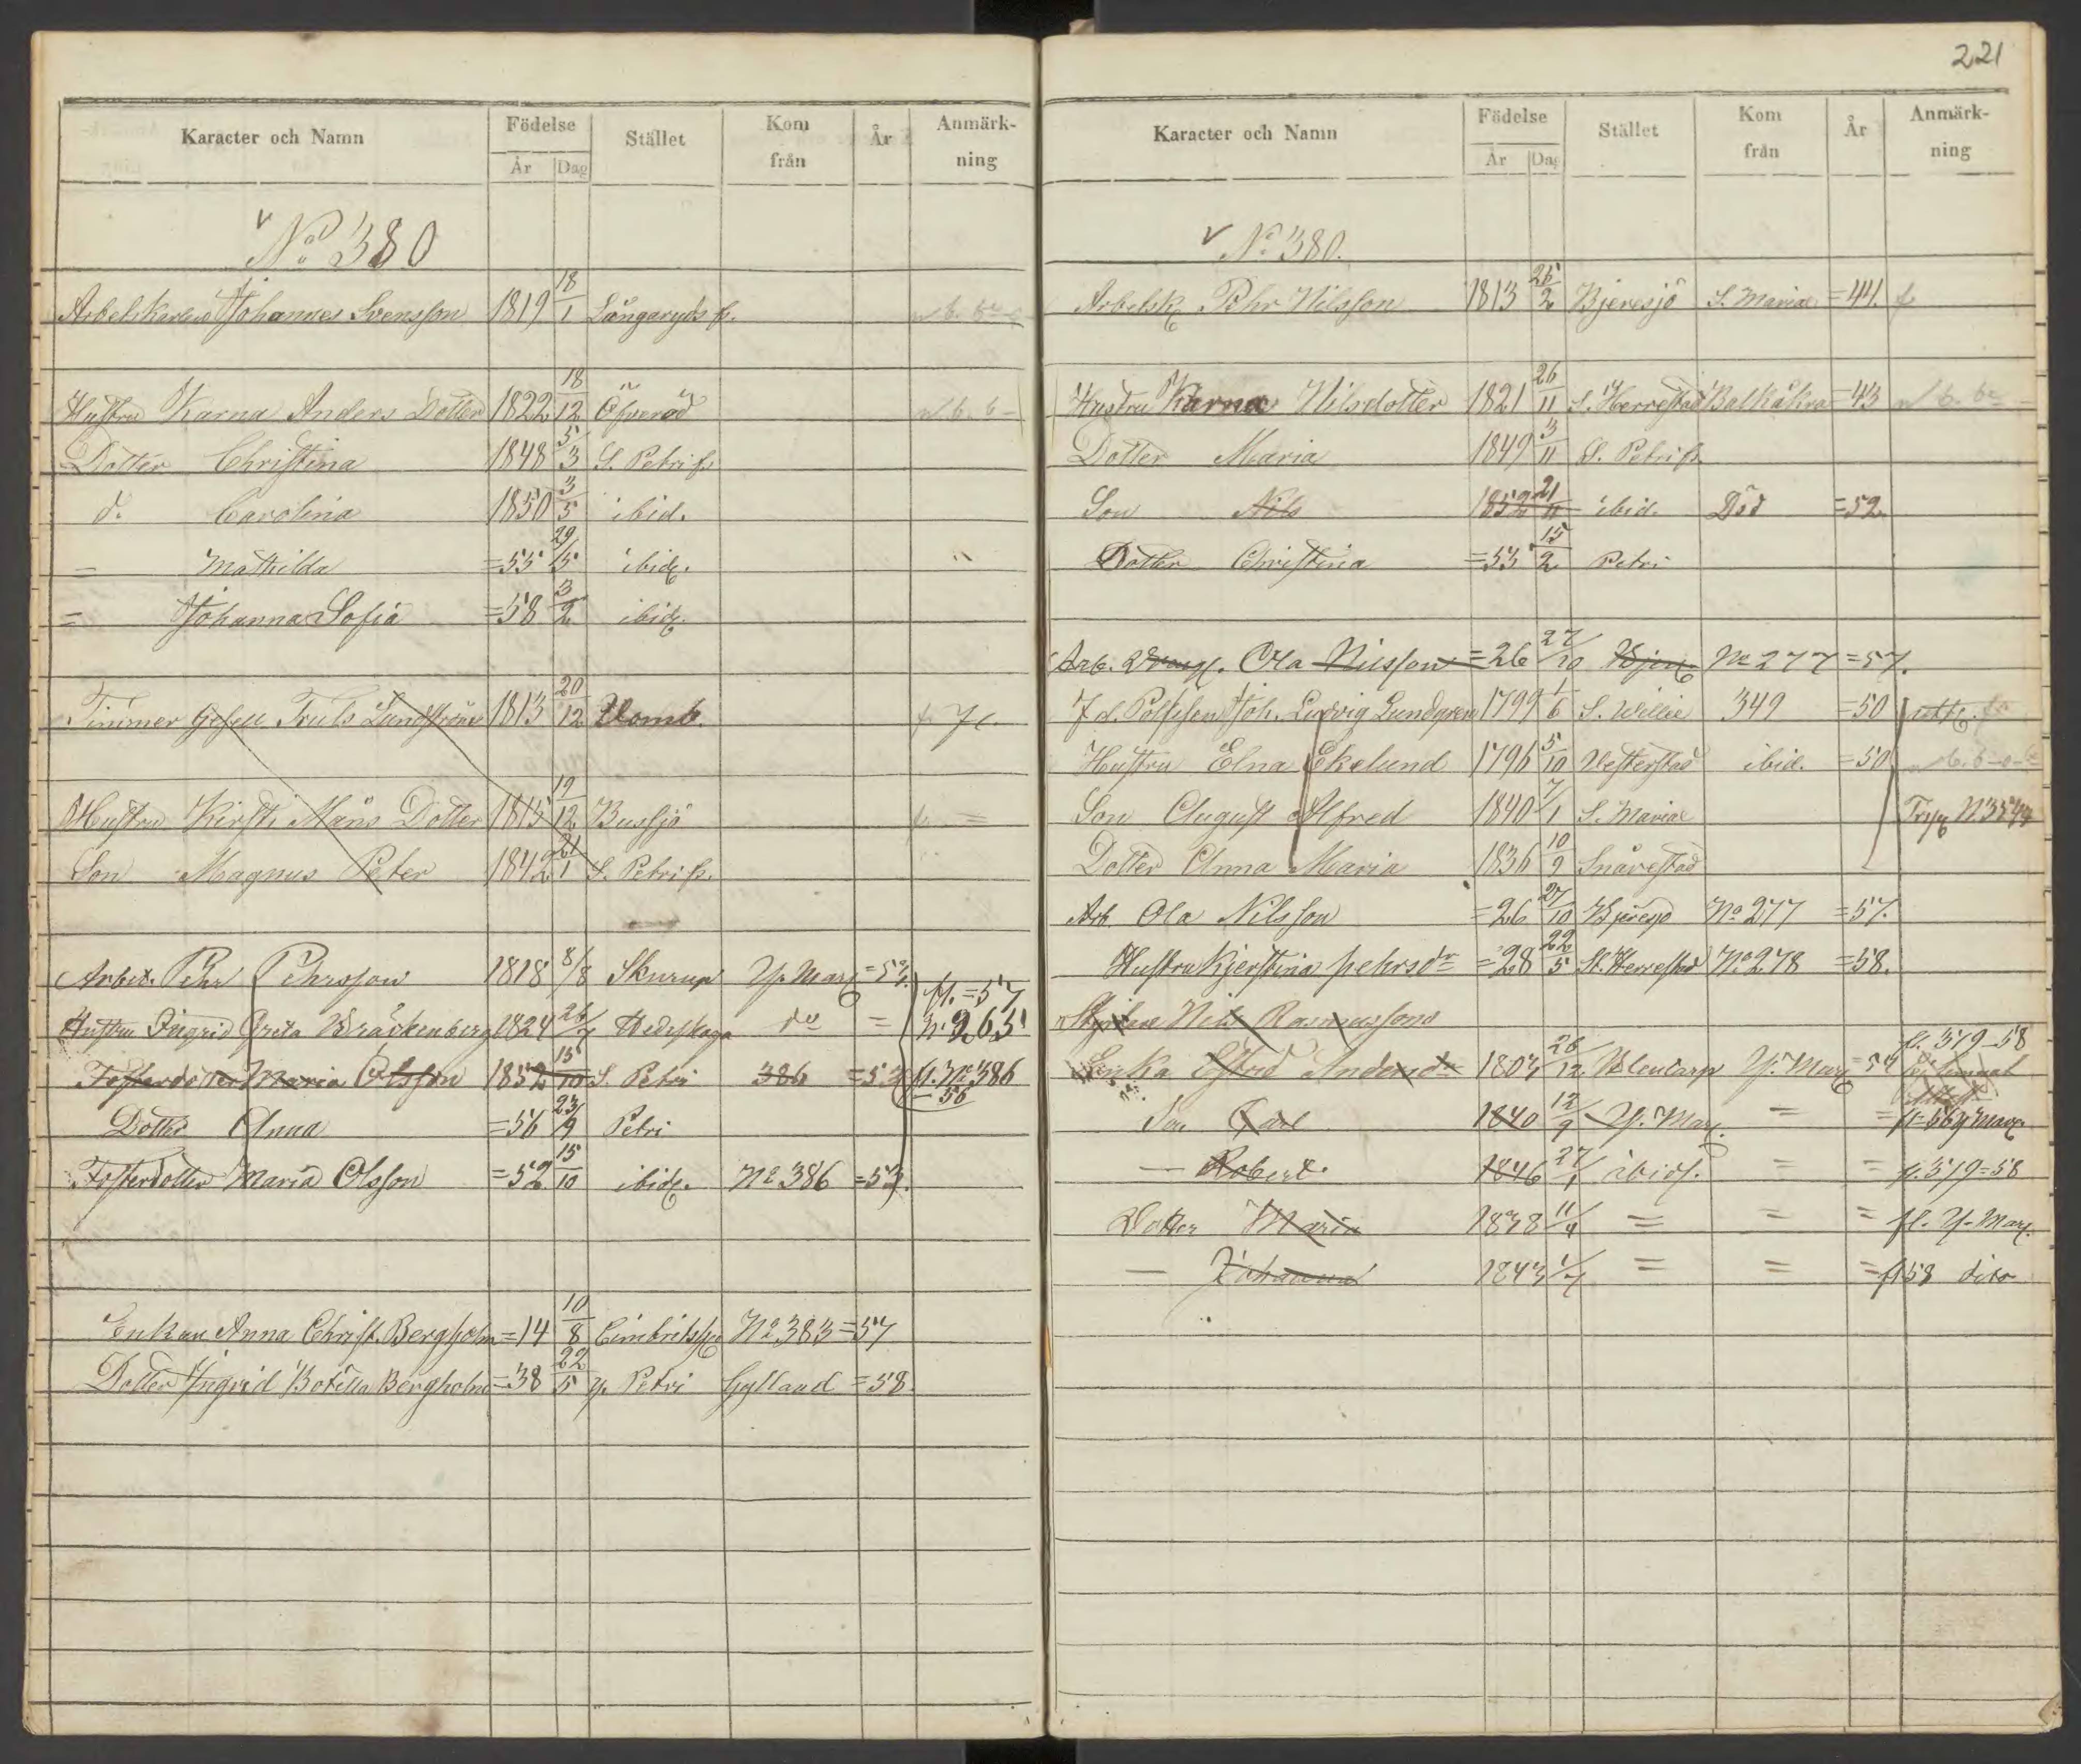 221
Karacter och Namn Födelse Stället Kom från År Anmärkning
År Dag
No 380
Arbetskarlen Johannes Svensson 1819 18/1 Långaryds f.
Hustru Karna Anders Dotter 1822 18/12 Öfveröd
Dotter Christina 1848 5/3 S. Petri f.
d. Carolina 1850 3/5 ibid.
— Mathilda =55 29/5 ibid.
= Johanna Sofia =58 3/2 ibid.
Timmer Gesell Truls Lundström 1813 20/12 Vomb.
Hustru Kirsti Måns Dotter 1815 19/12 Bussjö
Son Magnus Peter 1842 21/1 S. Petri f.
Arbet. Pehr Pehrsson 1818 8/8 Skurup Y. Mar.
Hustru Ingrid Greta Bräckenberg 1824 26/7 Hedeskoga do = fl. =57 No 265
Fosterdotter Maria Olsson 1852 15/10 S. Petri 386 =53 fl. No 386 — 56
Dotter Anna =56 23/9 Petri
Fosterdotter Maria Olsson =52 15/10 ibid. No 386 =53.
Enkan Anna Christ. Bergholm =14 10/8 Cimbritsh. No 383 =57
Dotter Ingrid Botilla Bergholm =38 22/5 Y. Petri Gylland =58.
Karacter och Namn Födelse Stället Kom från År Anmärkning
År Dag
No 380.
Arbetsk. Pehr Nilsson 1813 Bjeresjö S. Mariæ =44. f
Hustru Karna Nilsdotter 1821 26/11 S. Herrestad Balkåkra =43
Dotter Maria 1849 3/11 S. Petri f.
Son Nils 1852 21/11 ibid. Död =52
Dotter Christina =53 15/2 Petri
Arb. Ola Nilsson =26 27/10 No 277 =57.
F. d. Joh. Ludvig Lundgren 1799 1/6 S. Willie 349 =50
Hustru Elna Ekelund 1796 5/10 Vesterstad ibid. =50
Son August Alfred 1840 7/1 S. Mariæ
Dotter Anna Maria 1836 10/9 Snårestad
Arb. Ola Nilsson =26 27/10 Bjeresjö No 277 =57.
Hustru Kjerstina pehrsdr =28 22/5 St. Herrestad No 278 =58.
Nils Rasmussons
Enka Elsed Andersdr 26/12 Y. Mar. 54 fl. 379 – 58
Son Carl 1840 12/9 Y. Mar. = =
— Robert. 1846 27/1 ibid. = = fl. 379=58
Dotter Maria 1838 = = = fl. Y. Mar.
— Johanna 1843 1/7 = = = fl 58 dito